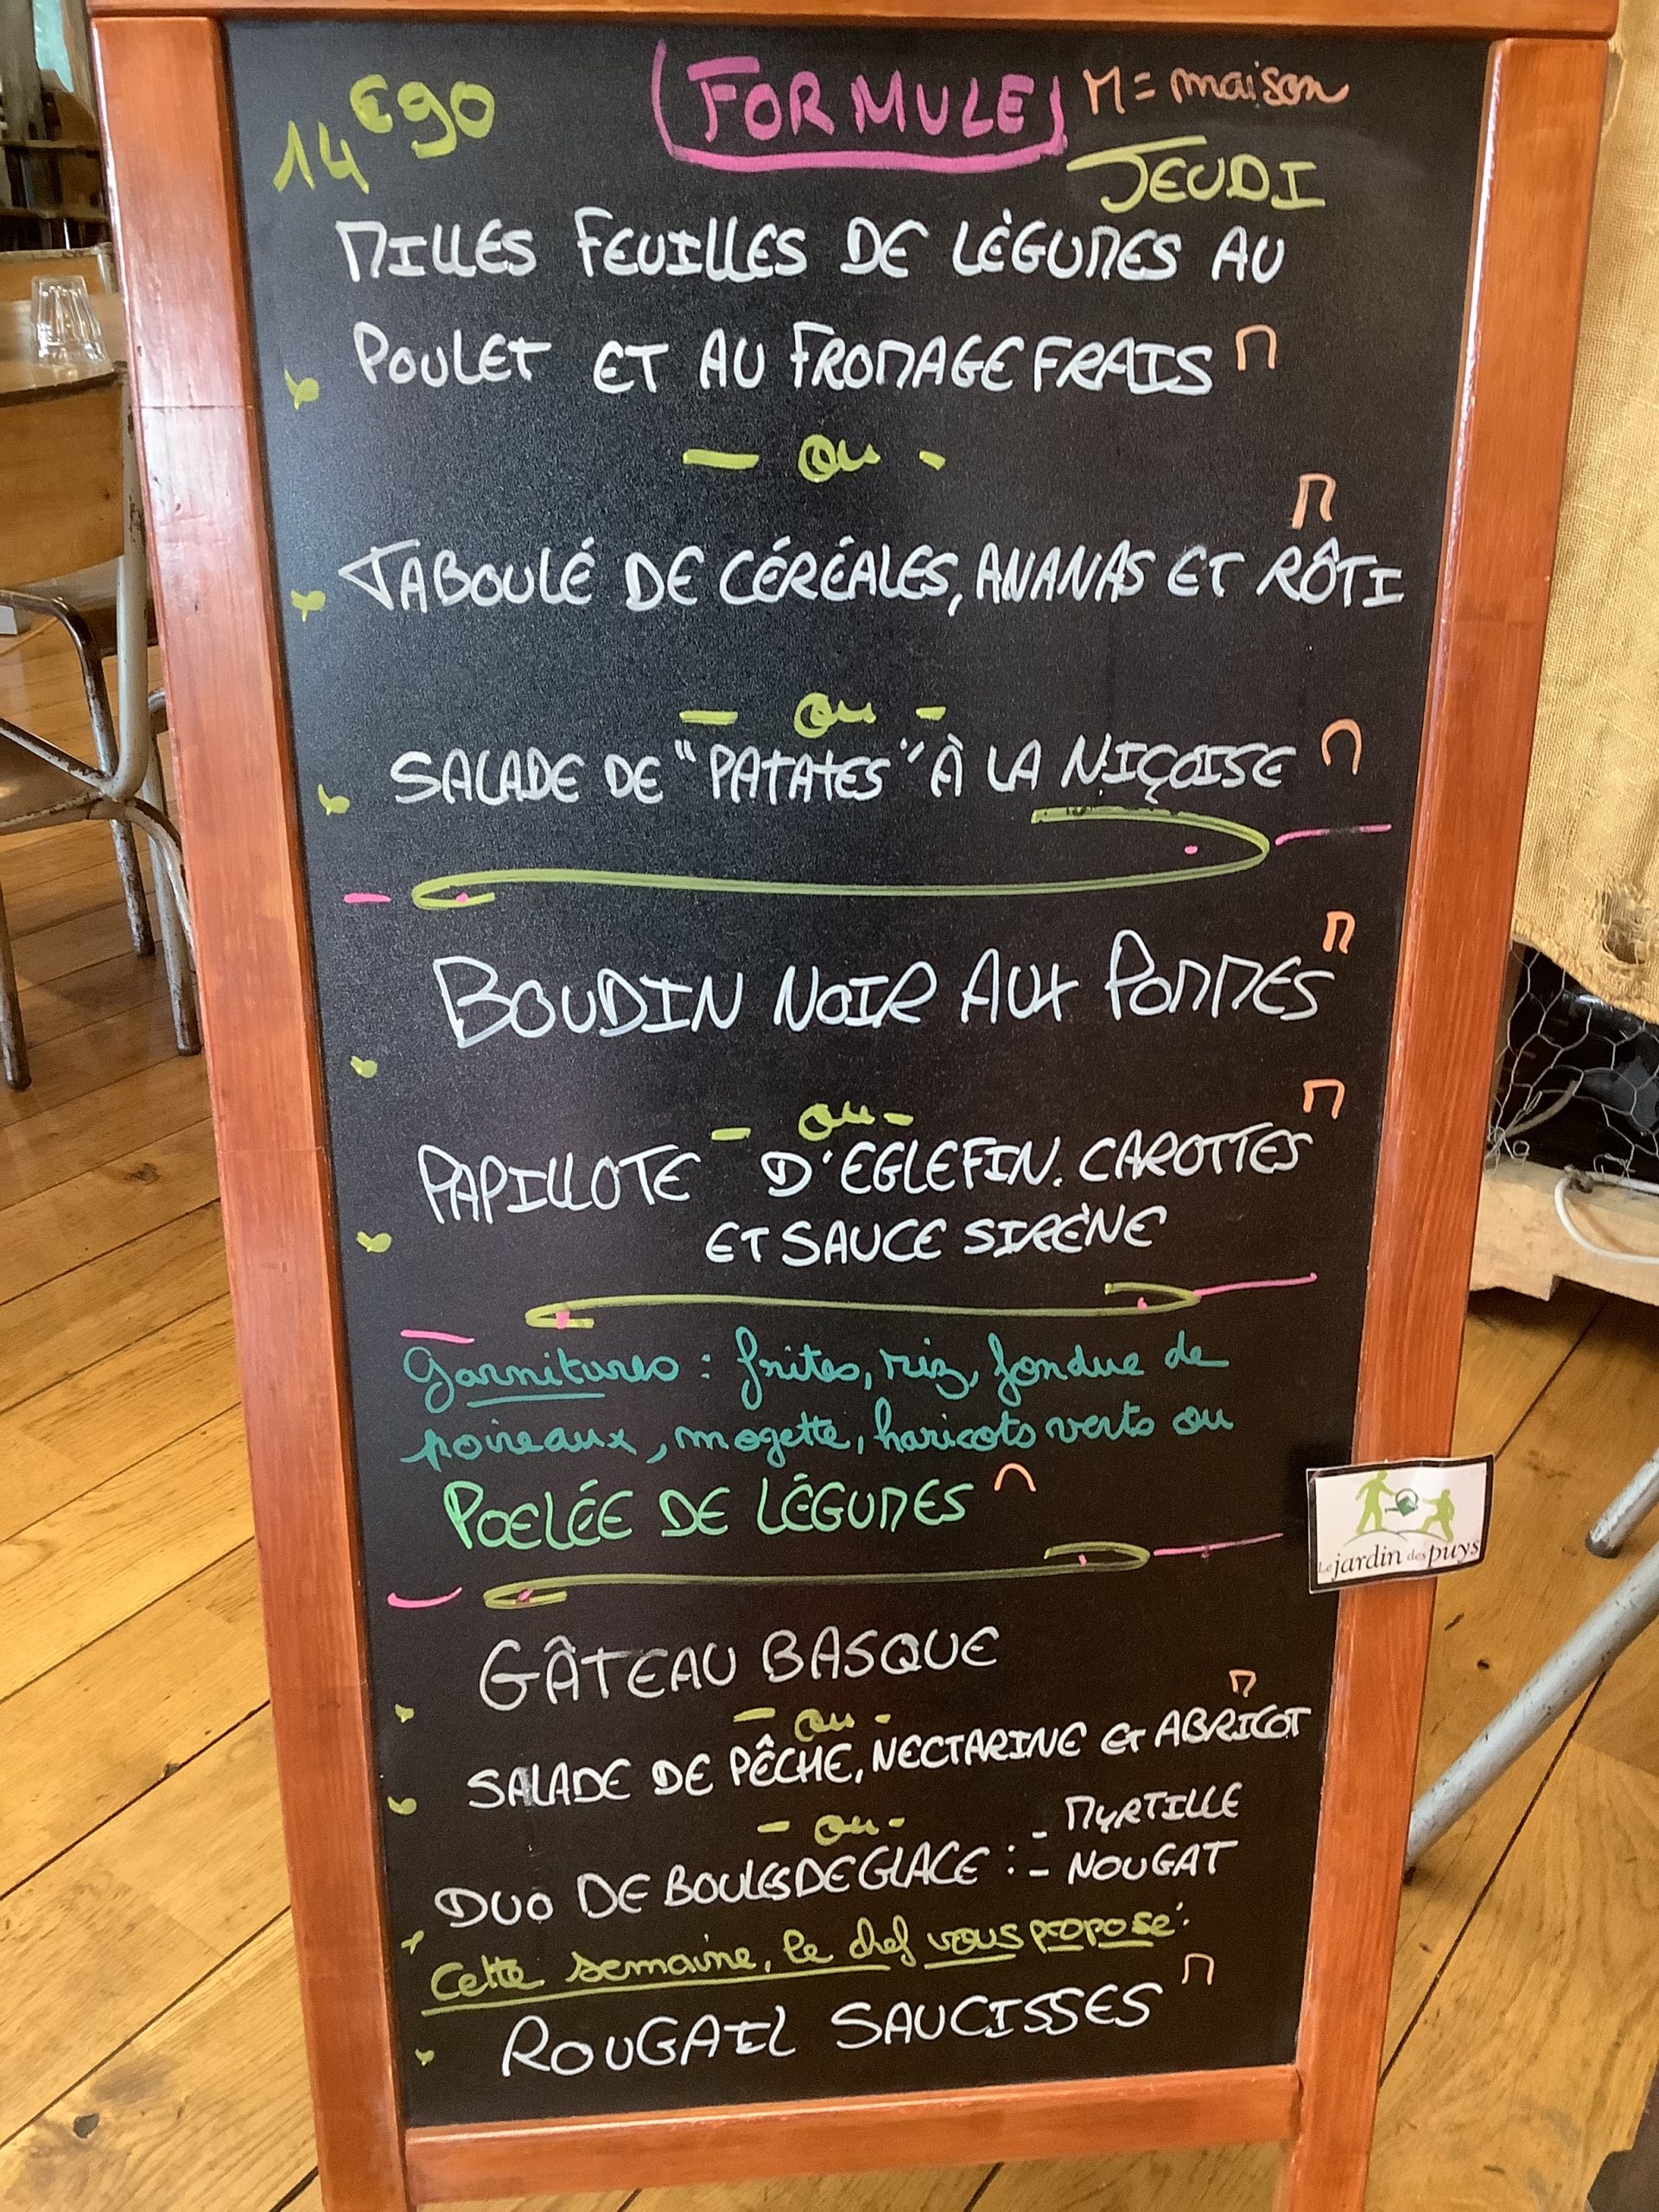 14€90 FORMULE M = maison
JEUDI
MILLES FEUILLES DE LÈGUMES AU
POULET ET AU FROMAGE FRAIS M
- ou -
M
TABOULÉ DE CÉRÉALES, ANANAS ET RÔTI
- ou -
SALADE DE "PATATES" À LA NIÇOISE M
M
BOUDIN NOIR AUX POMMES
- ou - M
PAPILLOTE D'EGLEFIN. CAROTTES
ET SAUCE SIRÈNE
Garnitures : frites, riz, fondue de
poireaux, mogette, haricots verts ou
POELÉE DE LÉGUMES M
GÂTEAU BASQUE
- ou - M
SALADE DE PÊCHE, NECTARINE ET ABRICOT
- ou - - MYRTILLE
DUO DE BOULES DE GLACE : - NOUGAT
Cette semaine, le chef vous propose :
ROUGAIL SAUCISSES M
Le jardin des puys